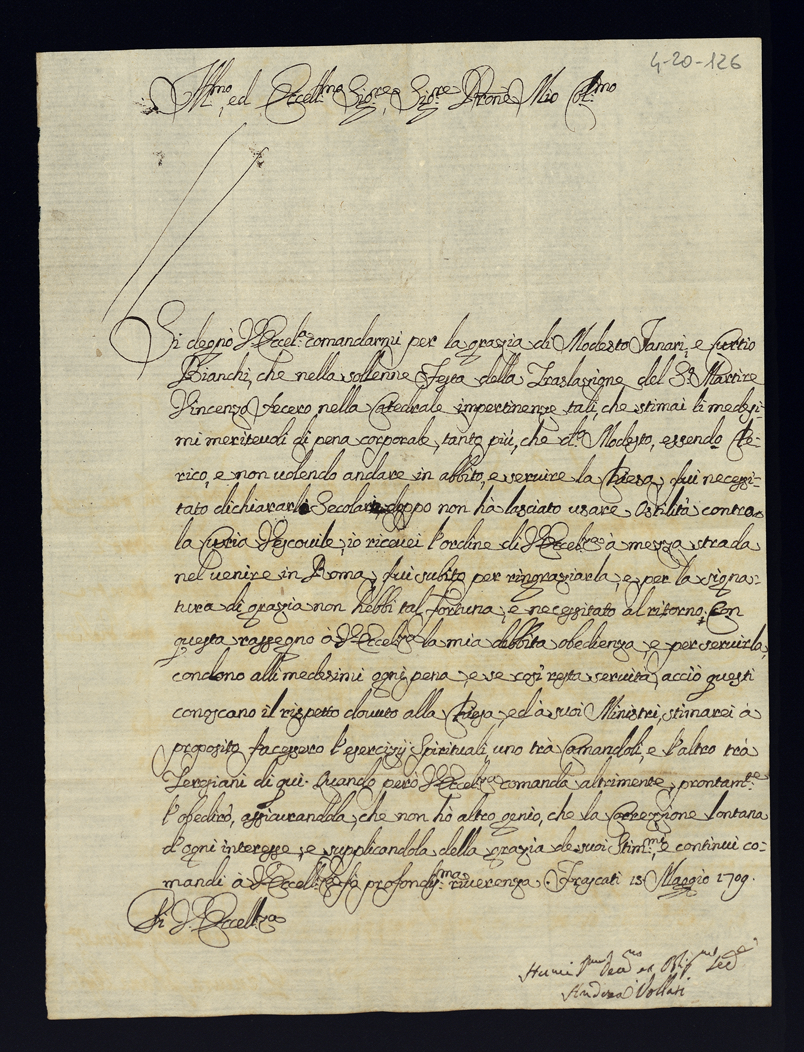 4-20-126
Ill.mo, ed Eccell.mo Sig.re, Sig.re, Prone Mio Col.mo
Si degnò V. Eccel.a comandarmi per la grazia di Modesto Janari, e Curtio
Bianchi, che nella sollenne Festa della Traslazione del S. Martire
Vincenzo fecero nella Catedrale impertinenze tali, che stimai li medesi-
mi meriteuoli di pena corporale, tanto più, che d.o Modesto, essendo Cle-
rico, e non uolendo andare in abbito, e seruire la Chiesa, fui necessi-
tato dichiararlo Secolare, doppo non hà lasciato usare Ostilità contro
la Curia Vescouile, io riceuei l'ordine di V. Eccel.za à mezza strada
nel uenire in Roma, fui subito per ringraziarla, e per la signa-
tura di grazia non hebbi tal fortuna, e necessitato al ritorno. Con
questa rassegno à V. Eccel.za la mia debbita obedienza, e per seruirla,
condono alli medesimi ogni pena, e se così resta seruita, acciò questi
conoscano il rispetto douuto alla Chiesa, ed à suoi Ministri, stimarei à
proposito facessero l'esercizij Spirituali uno trà Camandoli, e l'altro trà
Teresiani di qui. Quando però V. Eccel.za comanda altrimente, prontam.te
l'obedirò, assicurandola, che non hò altro genio, che la Correzzione lontana
d'ogni interesse, e supplicandola della grazia de suoi Stim.mi, e continui co-
mandi à V. Eccell.za fo profondis.ma riuerenza. Frascati 13 Maggio 1709.
Di V. Eccell.za
Andrea Vollari